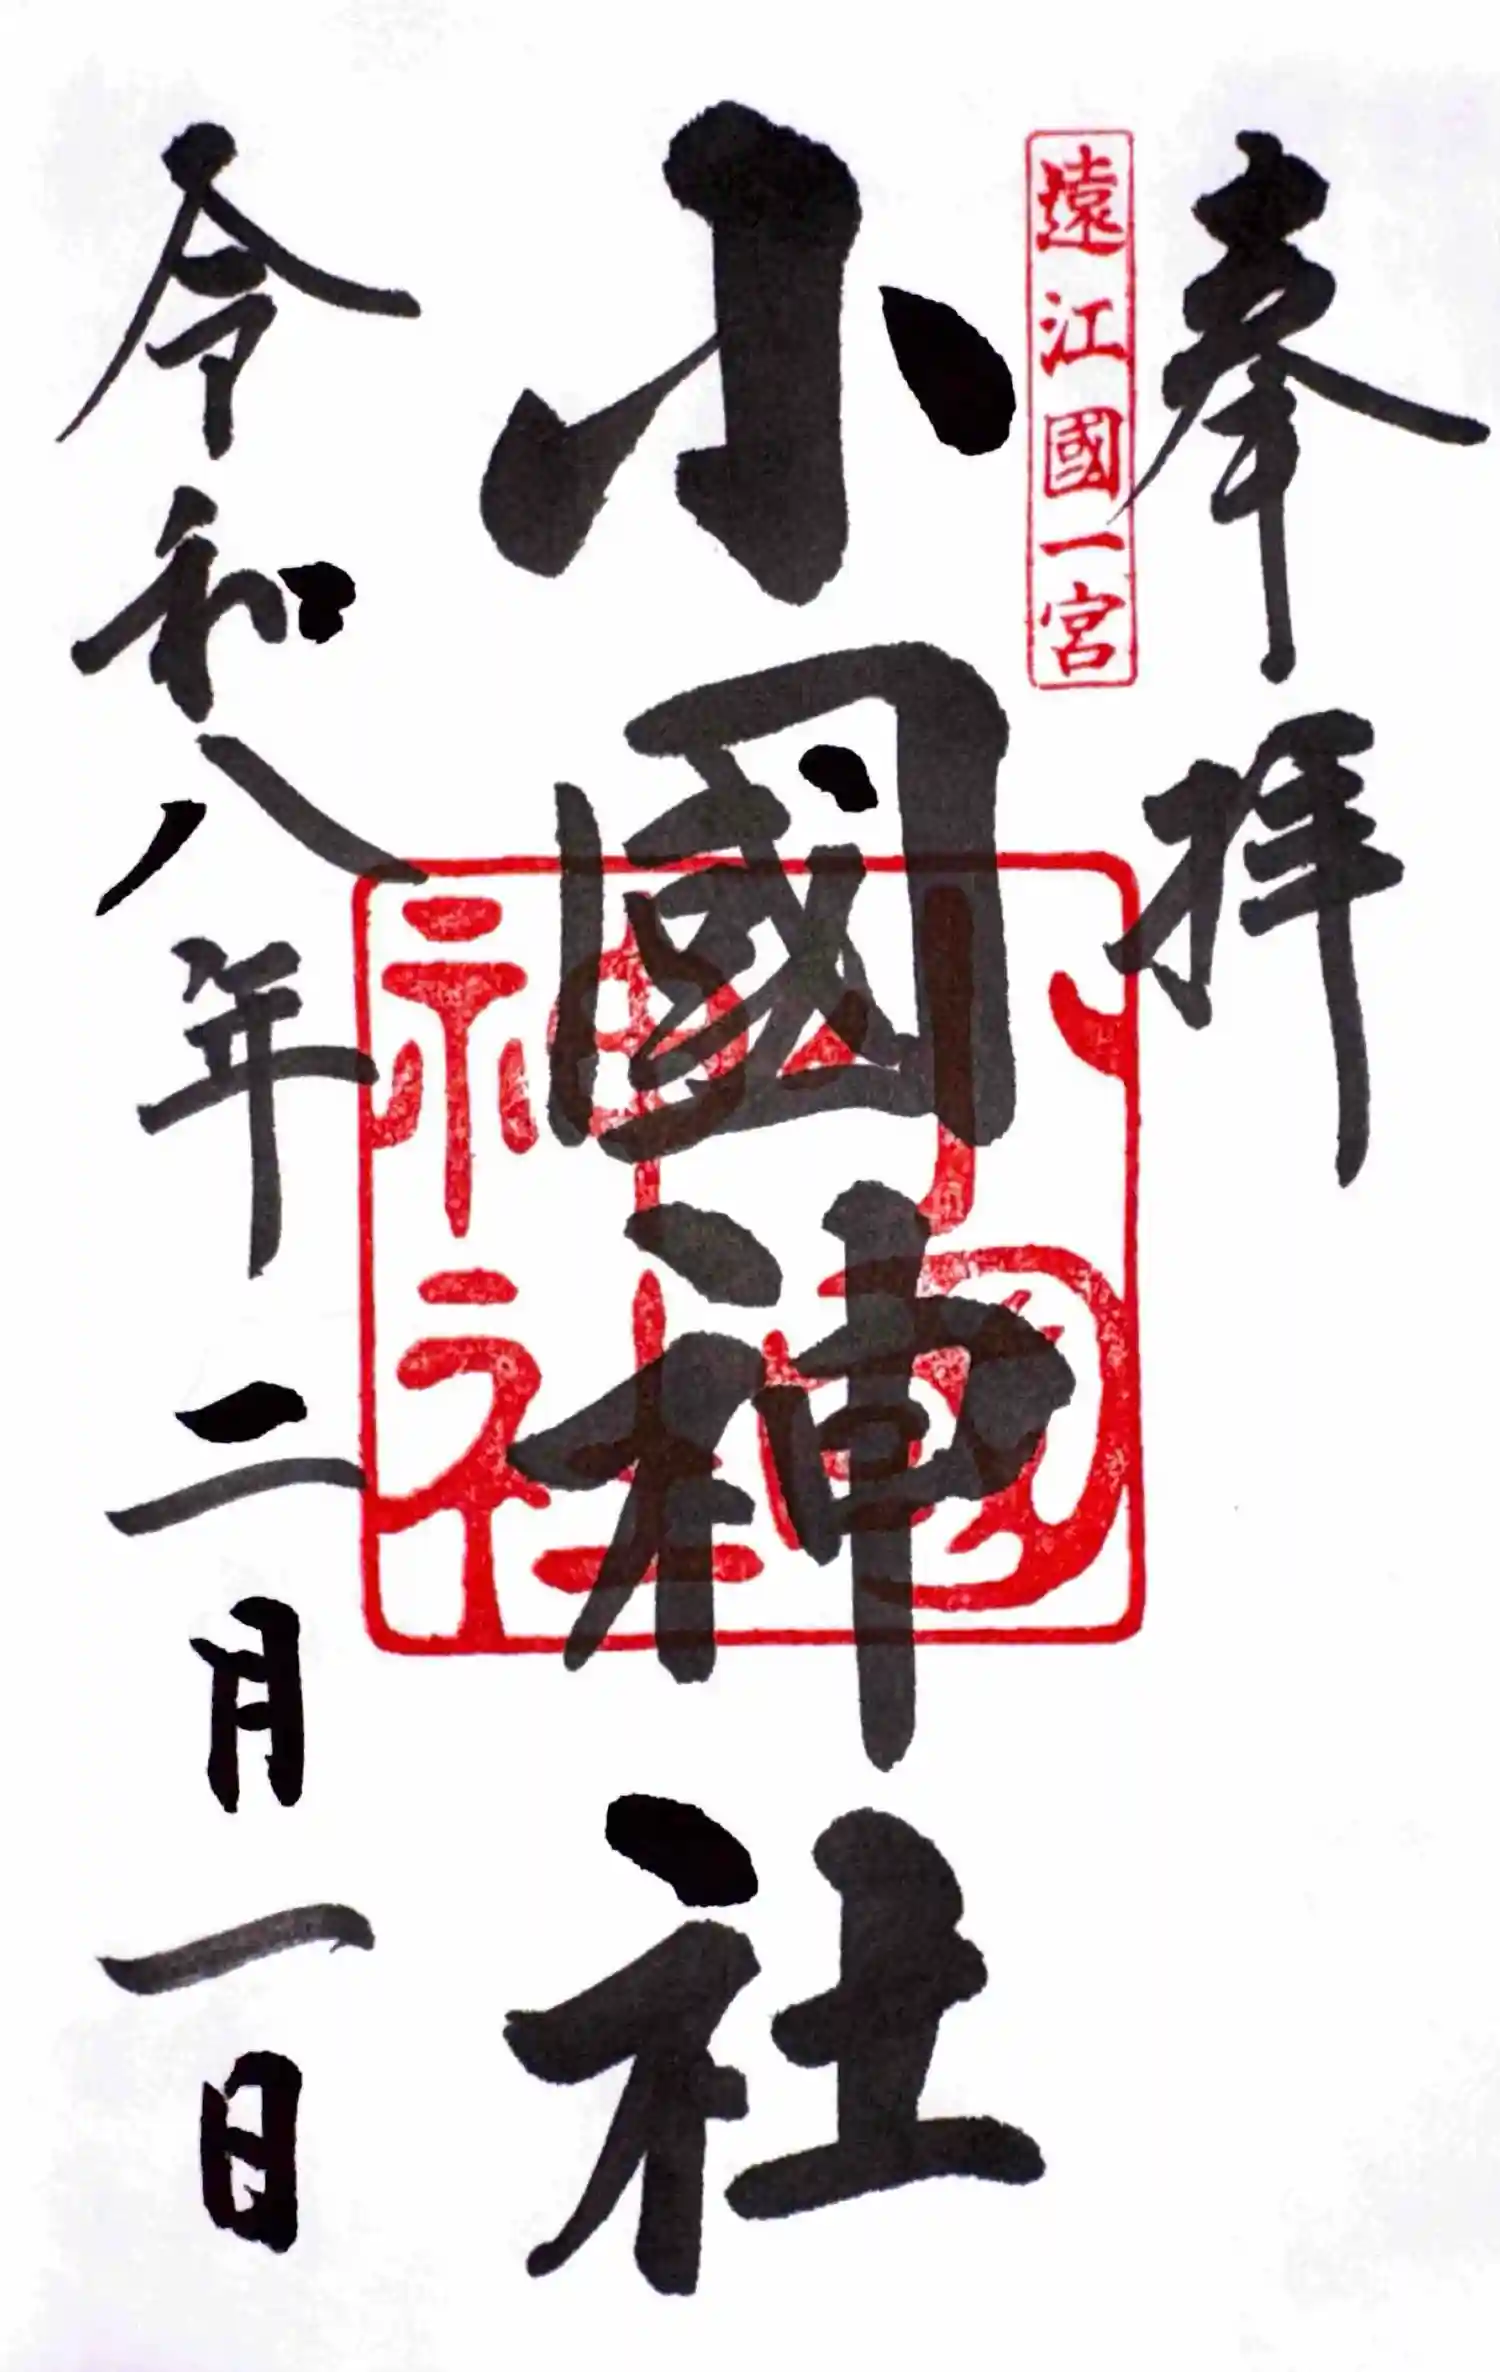 奉拝
遠江國一宮
小國神社
小國神社
令和八年二月一日